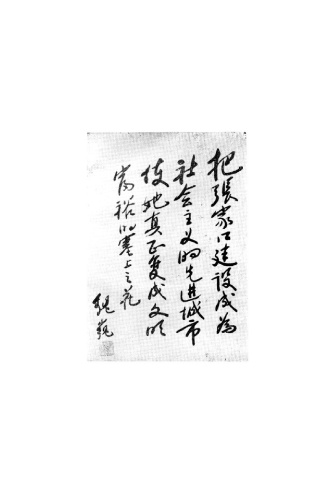 把張家口建设成為
社会主义的先进城市
使她真正变成文明
富裕的塞上之花
魏巍